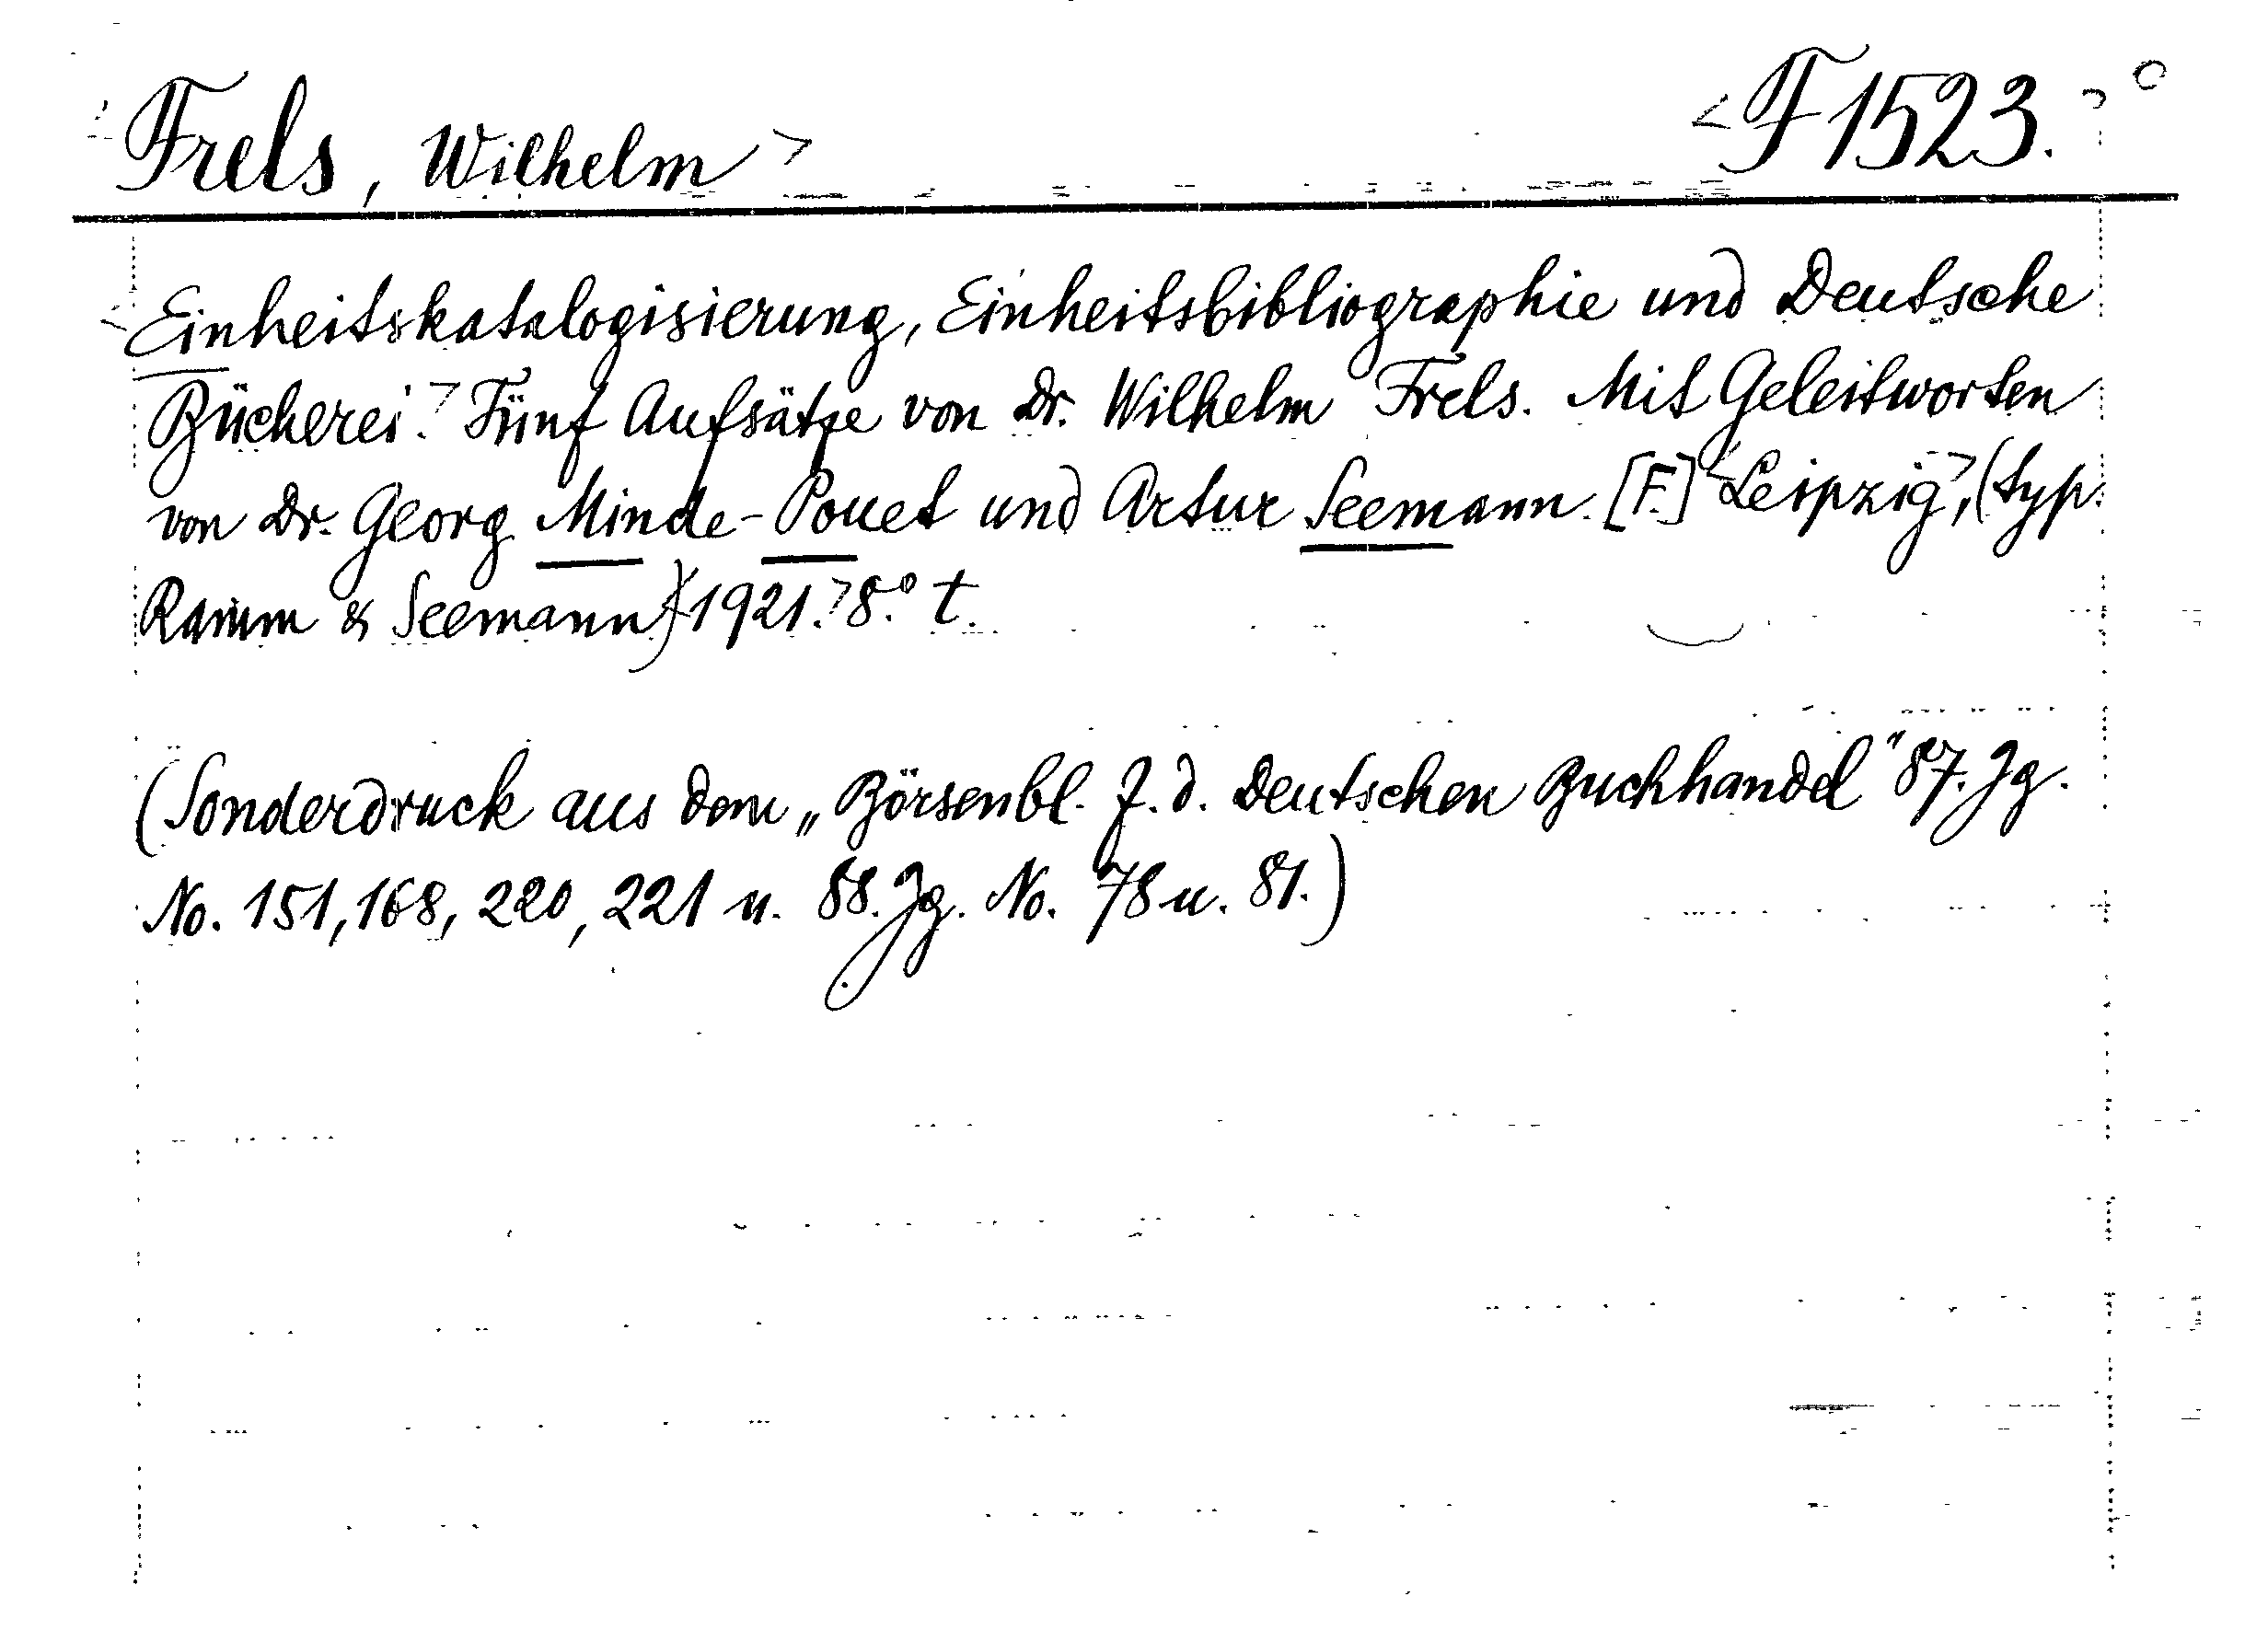 Frels, Wilhelm> <F 1523.>
<Einheitskatalogisierung, Einheitsbibliographie und Deutsche
Bücherei.> Fünf Aufsätze von Dr. Wilhelm Frels. Mit Geleitworten
von Dr. Georg Minde-Pouet und Artur Seemann. [F.] <Leipzig>, (typ.
Ramm & Seemann) <1921.> 8.° t.
(Sonderdruck aus dem „Börsenbl. f. d. Deutschen Buchhandel" 87. Jg.
No. 151, 168, 220, 221 u. 88. Jg. No. 78 u. 81.)